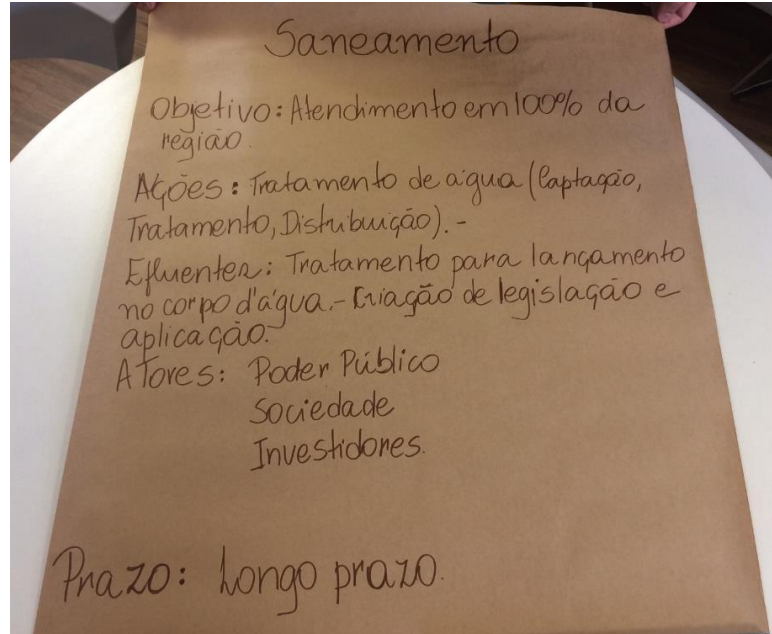 Saneamento
Objetivo: Atendimento em 100% da
região.
Ações: Tratamento de água (Captação,
Tratamento, Distribuição). -
Efluentes: Tratamento para lançamento
no corpo d'água. - Criação de legislação e
aplicação.
Atores: Poder Público
Sociedade
Investidores.
Prazo: Longo prazo.